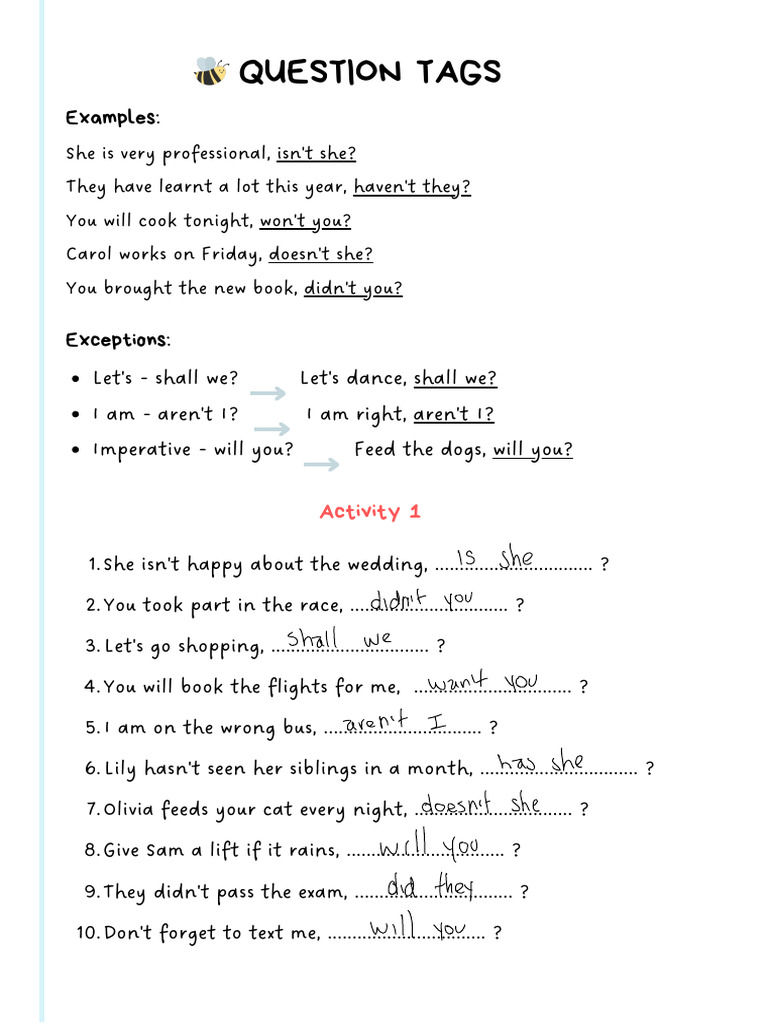 QUESTION TAGS
Examples:
She is very professional, isn't she?
They have learnt a lot this year, haven't they?
You will cook tonight, won't you?
Carol works on Friday, doesn't she?
You brought the new book, didn't you?
Exceptions:
• Let's - shall we? → Let's dance, shall we?
• I am - aren't I? → I am right, aren't I?
• Imperative - will you? → Feed the dogs, will you?
Activity 1
1. She isn't happy about the wedding, is she ?
2. You took part in the race, didn't you ?
3. Let's go shopping, shall we ?
4. You will book the flights for me, want you ?
5. I am on the wrong bus, aren't I ?
6. Lily hasn't seen her siblings in a month, has she ?
7. Olivia feeds your cat every night, doesn't she ?
8. Give Sam a lift if it rains, will you ?
9. They didn't pass the exam, did they ?
10. Don't forget to text me, will you ?